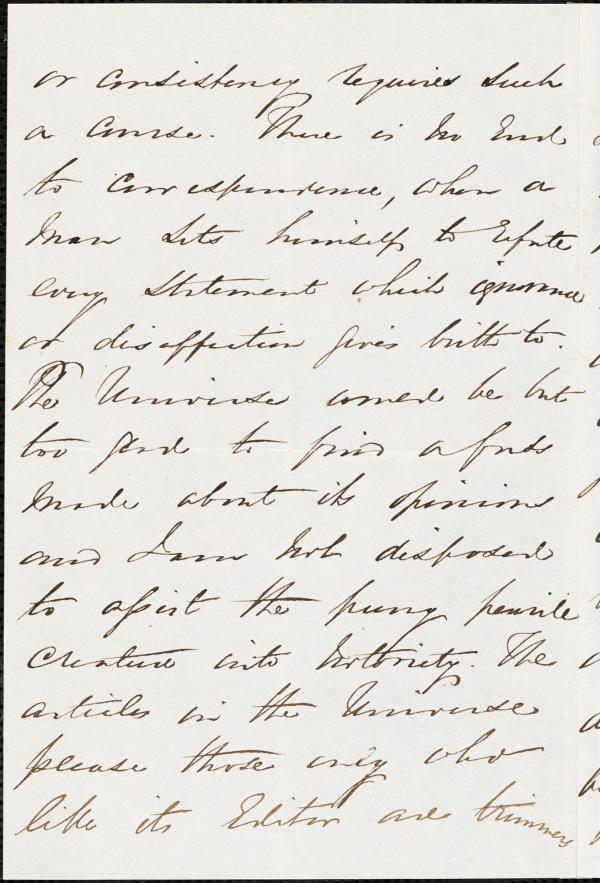 or consistency requires such
a course. There is no End
to correspondence, when a
man sets himself to refute
every statement which ignorance
or disaffection gives birth to.
The Universe would be but
too glad to find a fuss
made about its opinions
and I am not disposed
to assist the puny puerile
creature into notoriety. The
articles in the Universe
please those only who
like its Editor are trimmers